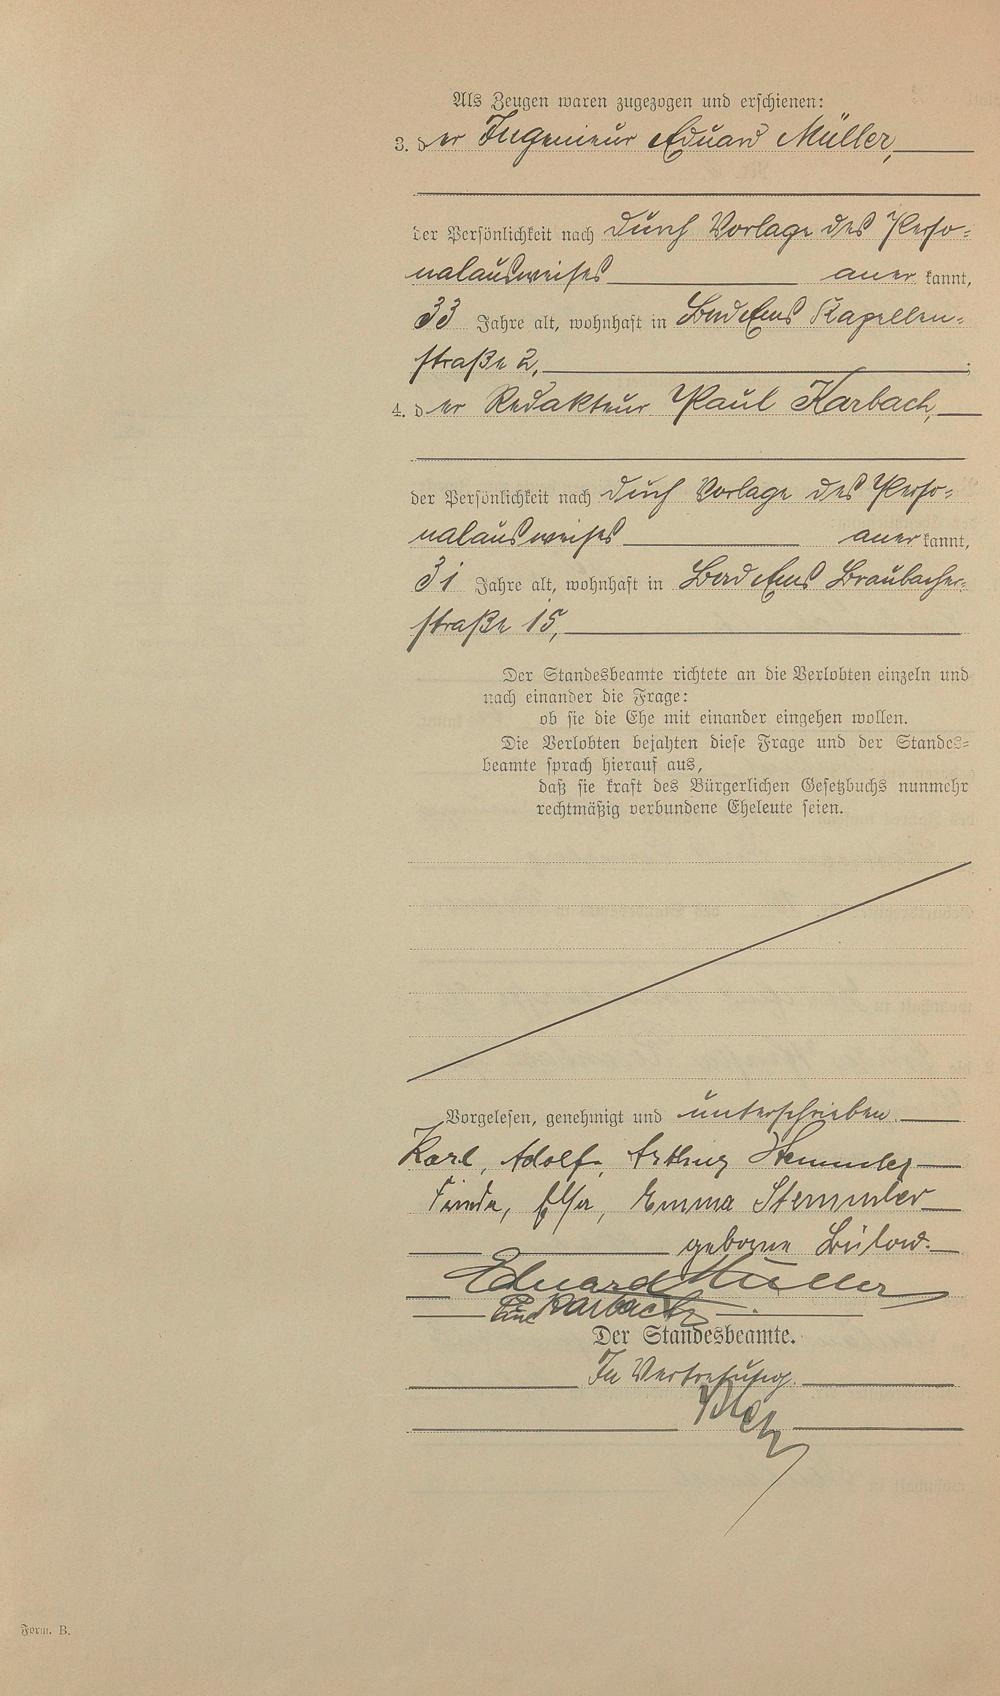 Als Zeugen waren zugezogen und erschienen:
3. der Ingenieur Eduard Müller,
der Persönlichkeit nach durch Vorlage des Perso-
nalausweises anerkannt,
33 Jahre alt, wohnhaft in Bad Ems Kapellen-
straße 2,;
4. der Redakteur Paul Karbach,
der Persönlichkeit nach durch Vorlage des Perso-
nalausweises anerkannt,
31 Jahre alt, wohnhaft in Bad Ems Braubacher-
straße 15,
Der Standesbeamte richtete an die Verlobten einzeln und
nach einander die Frage:
ob sie die Ehe mit einander eingehen wollen.
Die Verlobten bejahten diese Frage und der Standes-
beamte sprach hierauf aus,
daß sie kraft des Bürgerlichen Gesetzbuchs nunmehr
rechtmäßig verbundene Eheleute seien.
Vorgelesen, genehmigt und unterschrieben.
Karl, Adolf, Arthur Stemmler
Frieda, Elsa, Emma Stemmler
geborne Bülow.
Eduard Müller
Karbach
Der Standesbeamte.
In Vertretung.
Form. B.